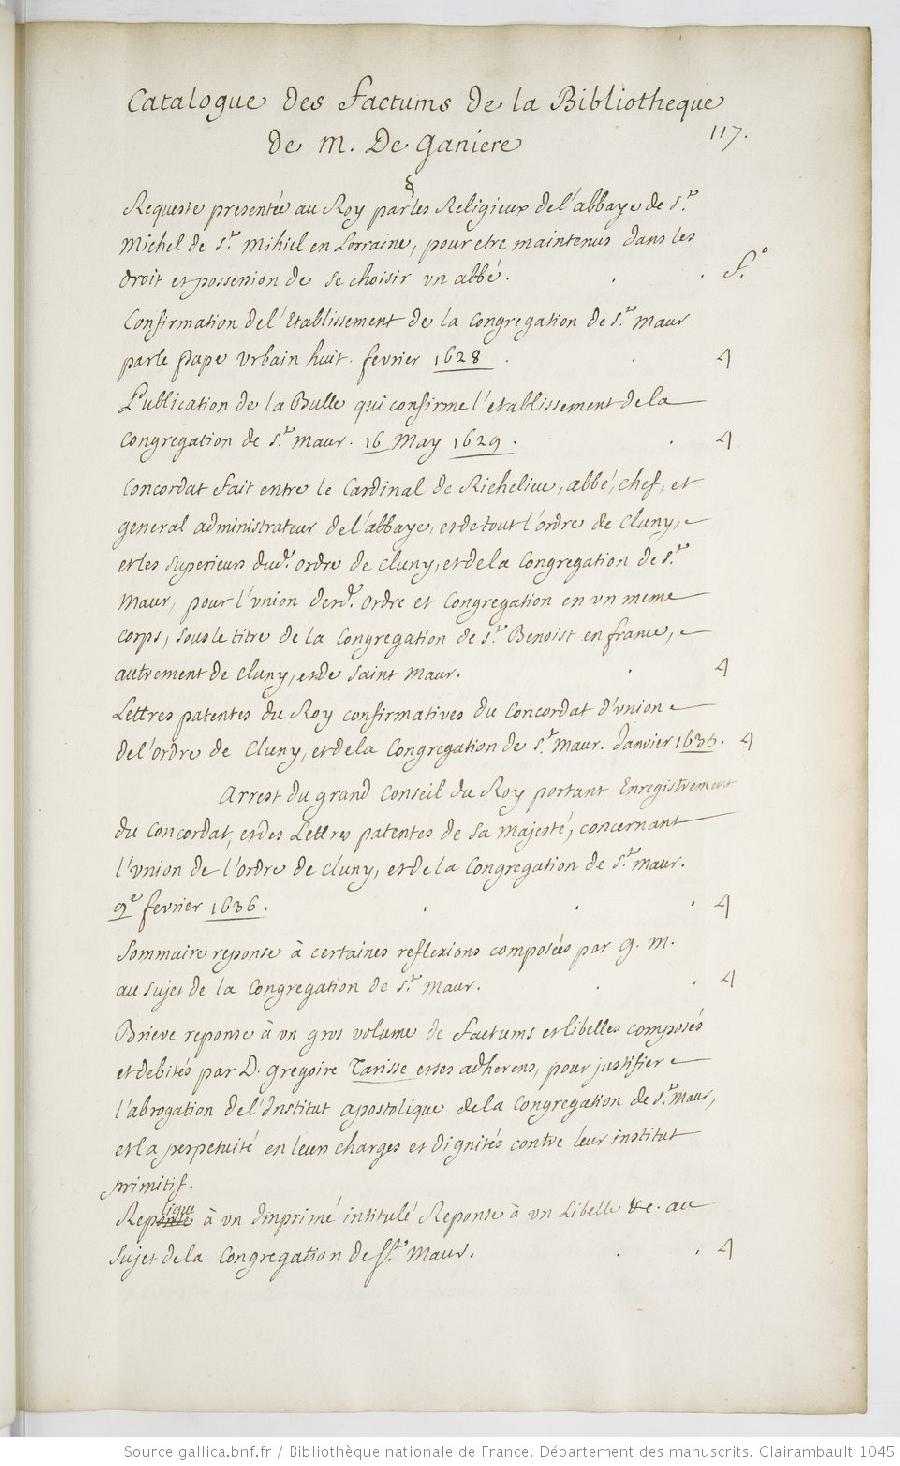 Catalogue des Factums de la Bibliotheque
de M. De Ganiere
117.
Requeste presentée au Roy par les Religieux de l'abbaye de S.r
Michel de S.t Mihiel en Lorraine, pour etre maintenus dans les
droit et possession de se choisir un abbé. . . f.o
Confirmation de l'Etablissement de la Congregation de S.t Maur
par le Pape Urbain huit. fevrier 1628 . . 4
Publication de la Bulle qui confirme l'etablissement de la
Congregation de S.t Maur. 16 May 1629. . 4
Concordat fait entre le Cardinal de Richelieu, abbé, chef, et
general administrateur de l'abbaye, et de tout l'ordre de Cluny,
et les superieurs dud.t ordre de Cluny, et de la Congregation de S.t
Maur, pour l'union desd.ts ordre et Congregation en un meme
corps, sous le titre de la Congregation de S.t Benoist en france,
autrement de Cluny, et de Saint Maur. . 4
Lettres patentes du Roy confirmatives du Concordat d'union
de l'ordre de Cluny, et de la Congregation de S.t Maur. Janvier 1635. 4
Arrest du grand Conseil du Roy portant Enregistrement
du Concordat, et des Lettres patentes de Sa Majesté, concernant
l'union de l'ordre de Cluny, et de la Congregation de S.t Maur.
9e fevrier 1636. . . . 4
Sommaire reponse à certaines reflexions composées par G. M.
au sujet de la Congregation de S.t Maur. . . 4
Brieve reponse à un gros volume de Factums et libelles composés
et debités par D. Gregoire Tarisse et ses adherens, pour justifier
l'abrogation de l'Institut apostolique de la Congregation de S.t Maur,
et la perpetuité en leurs charges et dignités contre leur institut
primitif.
Replique à un Imprimé intitulé Reponse à un Libelle &c. au
sujet de la Congregation de St. Maur. . . 4
Source gallica.bnf.fr / Bibliothèque nationale de France. Département des manuscrits. Clairambault 1045